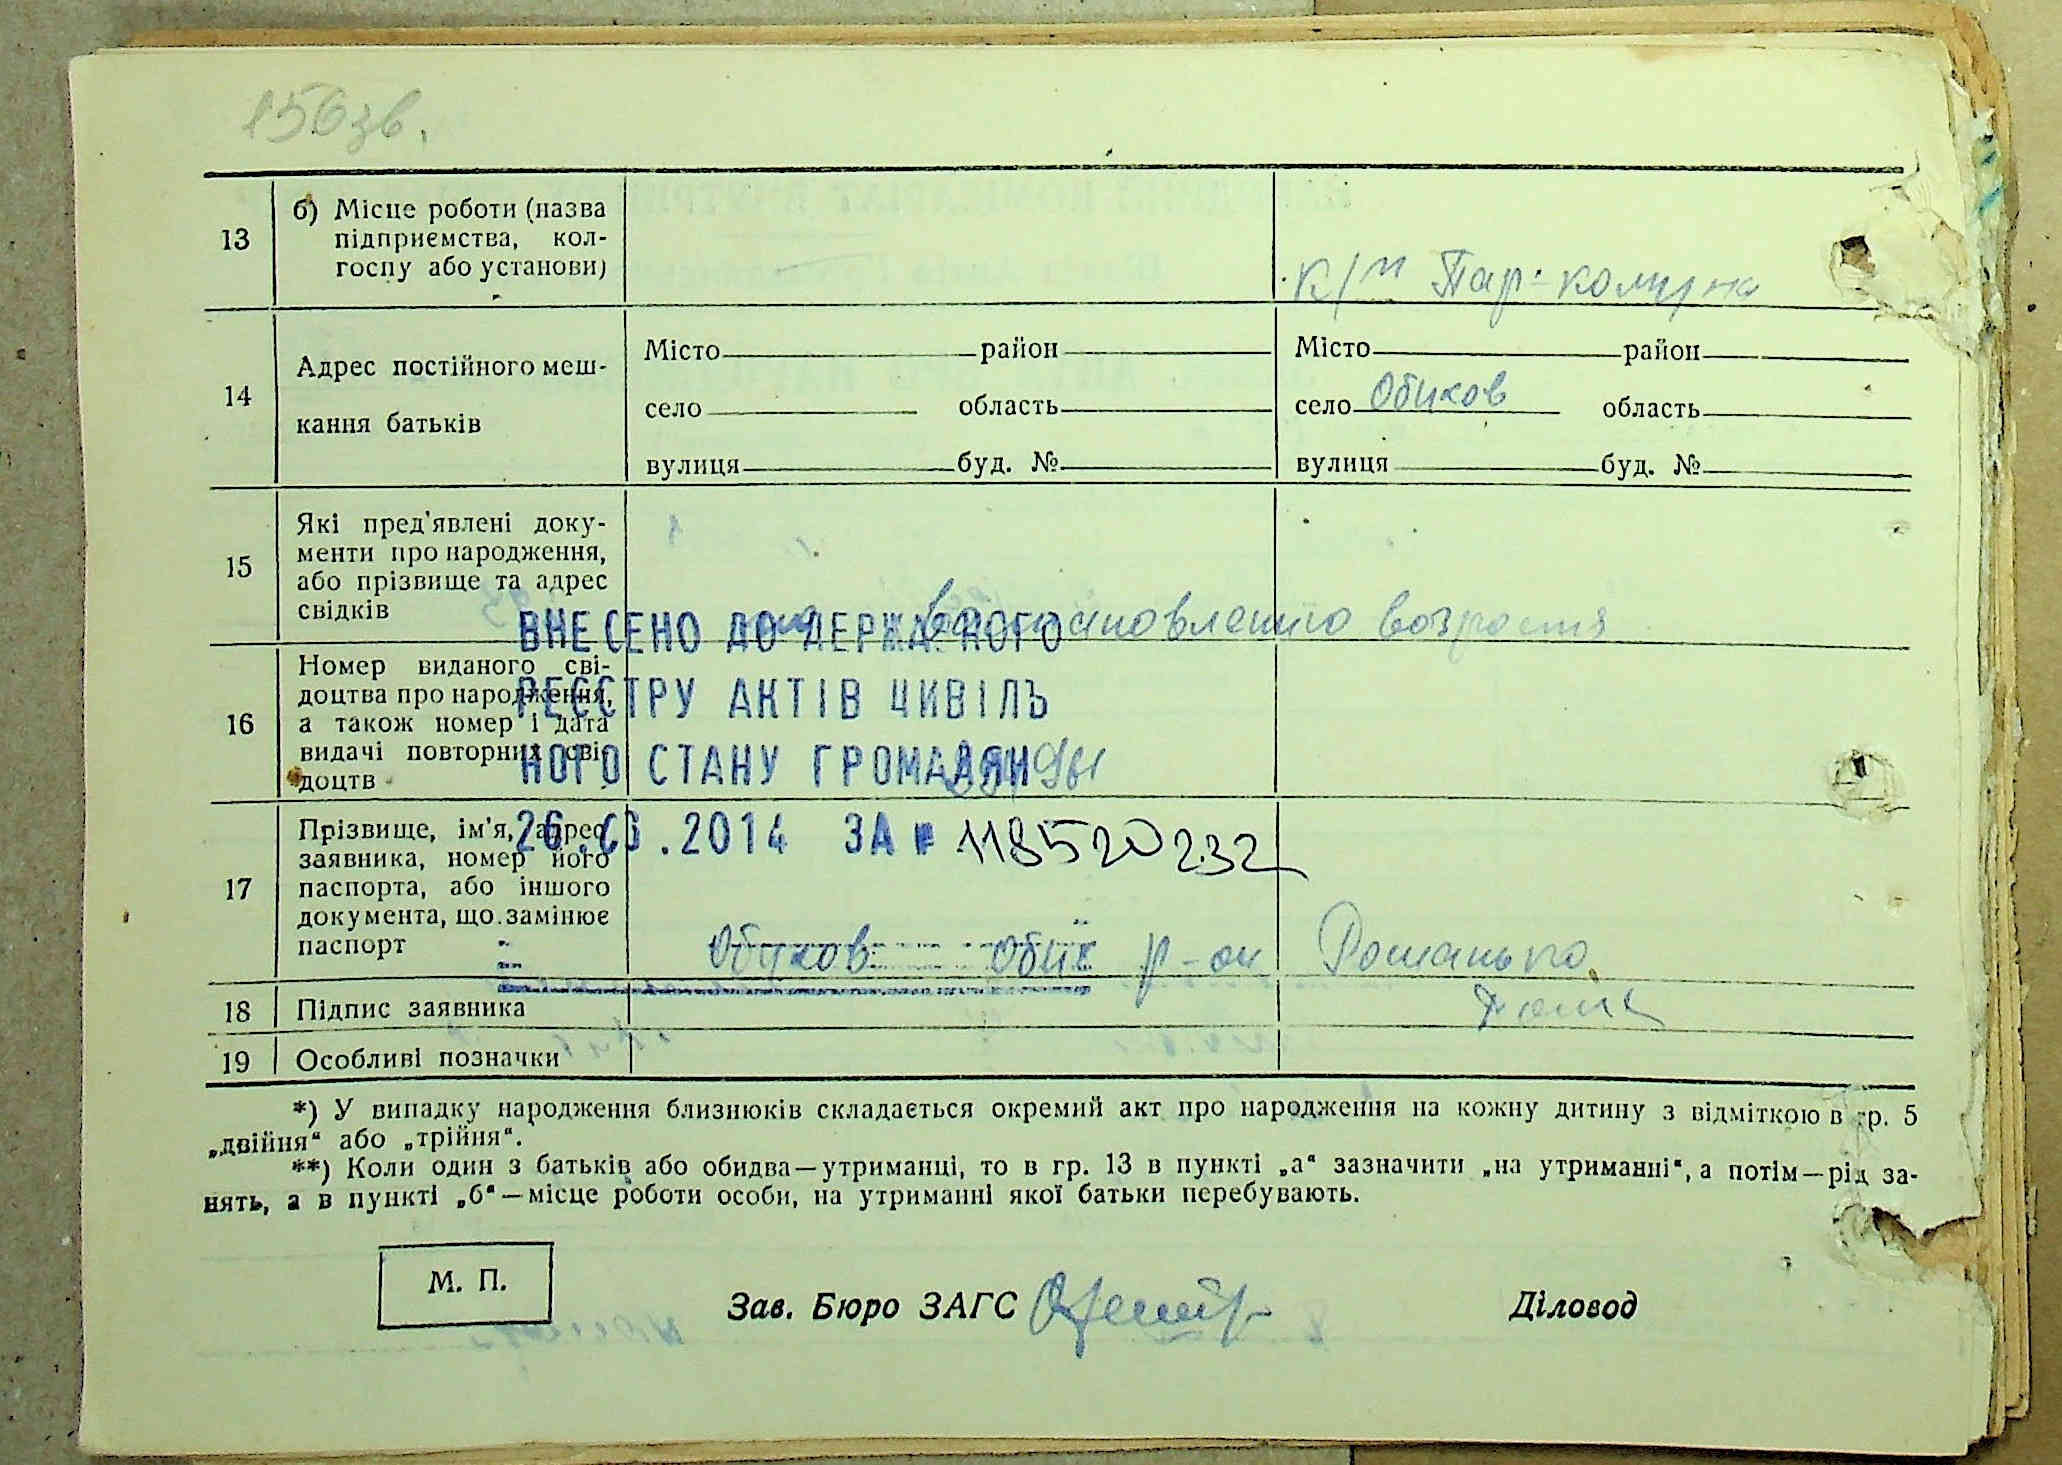 156зв.
13
б) Місце роботи (назва
підприємства, кол-
госпу або установи)
к/п Пар-комуна
14
Адрес постійного меш-
кання батьків
Місто район
село область
вулиця буд. №
Місто район
село Обихов область
вулиця буд. №
15
Які пред'явлені доку-
менти про народження,
або прізвище та адрес
свідків
возраста
16
Номер виданого сві-
доцтва про народження,
а також номер і дата
видачі повторних сві-
доцтв
ВНЕСЕНО ДО ДЕРЖАВНОГО
РЕЄСТРУ АКТІВ ЦИВІЛЬ
НОГО СТАНУ ГРОМАДЯН
.2014 ЗА № 118520232
17
Прізвище, ім'я, адрес
заявника, номер його
паспорта, або іншого
документа, що замінює
паспорт
Обухов р-он Романько
18 Підпис заявника
19 Особливі позначки
*) У випадку народження близнюків складається окремий акт про народження на кожну дитину з відміткою в гр. 5
„двійня“ або „трійня“.
**) Коли один з батьків або обидва—утриманці, то в гр. 13 в пункті „а“ зазначити „на утриманні“, а потім—рід за-
нять, а в пункті „б“—місце роботи особи, на утриманні якої батьки перебувають.
М. П.
Зав. Бюро ЗАГС
Діловод